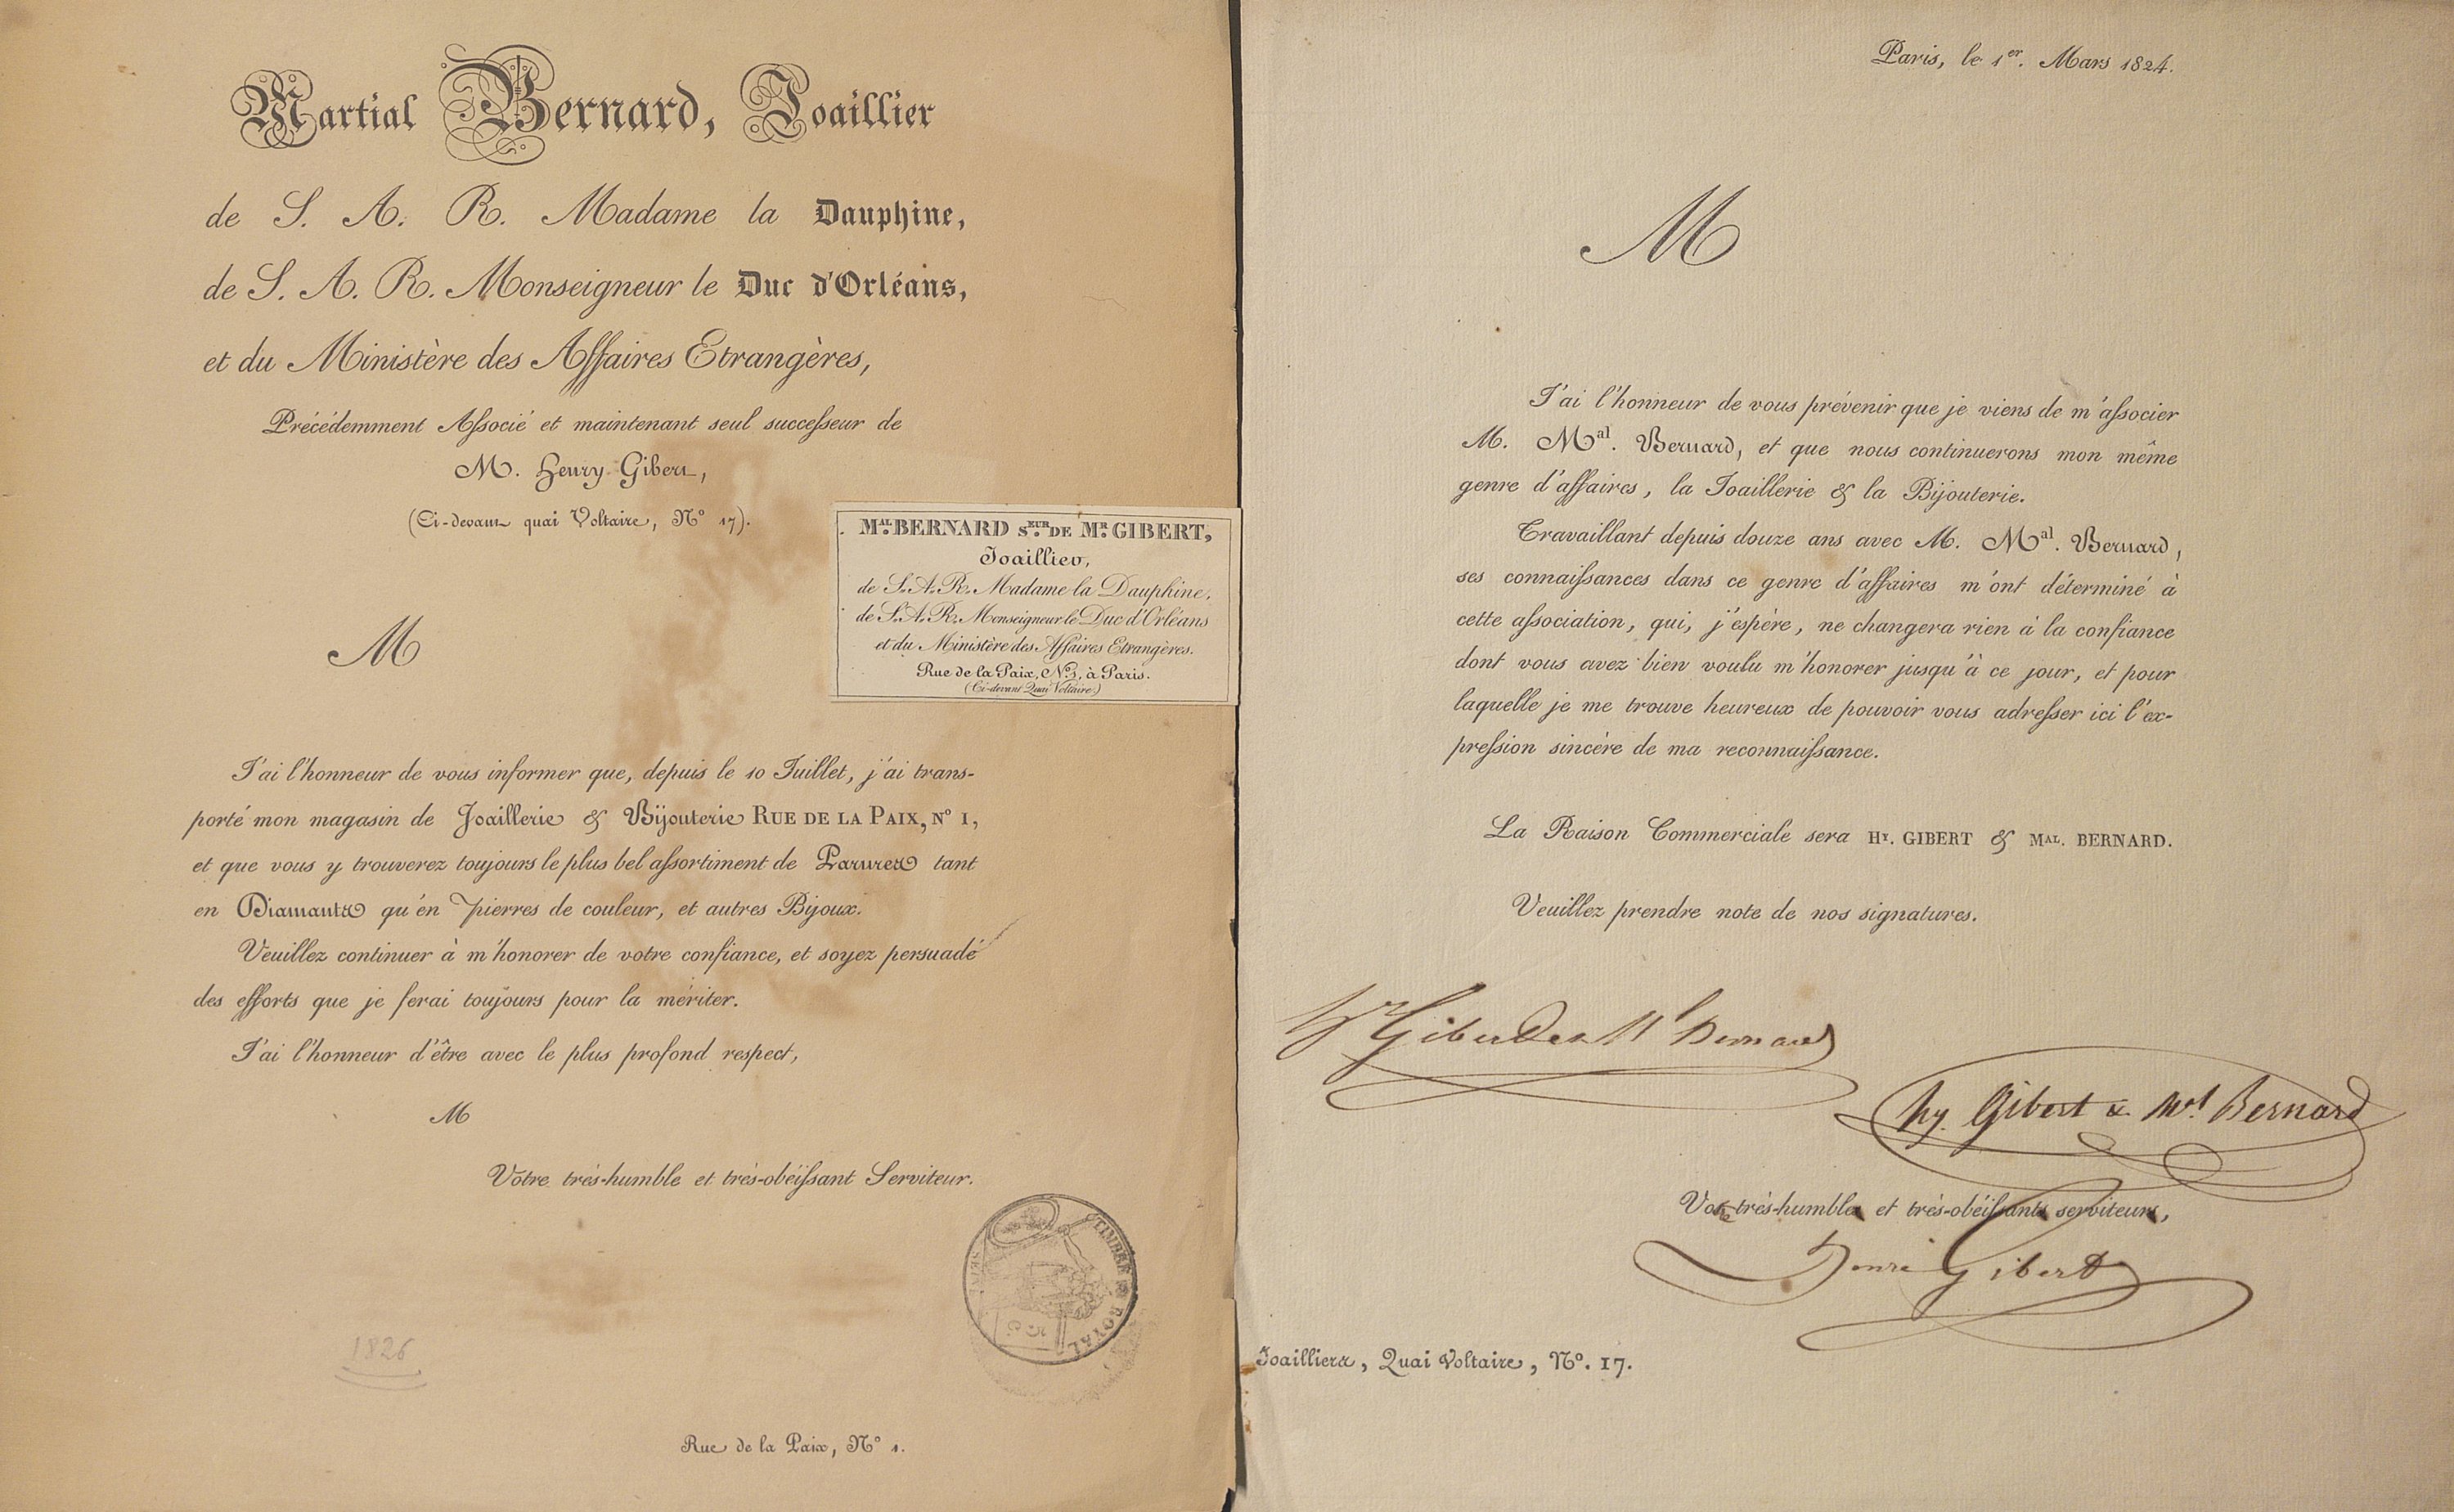 Martial Bernard, Joaillier
de S. A. R. Madame la Dauphine,
de S. A. R. Monseigneur le Duc d'Orléans,
et du Ministère des Affaires Etrangères,
Précédemment Associé et maintenant seul successeur de
M. Henry Gibert,
(Ci-devant quai Voltaire, N° 17).
M
J'ai l'honneur de vous informer que, depuis le 10 Juillet, j'ai trans-
porté mon magasin de Joaillerie & Bijouterie RUE DE LA PAIX, N° 1,
et que vous y trouverez toujours le plus bel assortiment de Parures tant
en Diamants qu'en pierres de couleur, et autres Bijoux.
Veuillez continuer à m'honorer de votre confiance, et soyez persuadé
des efforts que je ferai toujours pour la mériter.
J'ai l'honneur d'être avec le plus profond respect,
M
Votre très-humble et très-obéissant Serviteur.
TIMBRE ROYAL
SEINE
1826
Rue de la Paix, N° 1.
MAL. BERNARD SEUR. DE MR. GIBERT,
Joaillier,
de S. A. R. Madame la Dauphine,
de S. A. R. Monseigneur le Duc d'Orléans
et du Ministère des Affaires Etrangères.
Rue de la Paix, N° , à Paris.
(Ci-devant Quai Voltaire)
Paris, le 1er. Mars 1824.
M
J'ai l'honneur de vous prévenir que je viens de m'associer
M. Mal. Bernard, et que nous continuerons mon même
genre d'affaires, la Joaillerie & la Bijouterie.
Travaillant depuis douze ans avec M. Mal. Bernard,
ses connaissances dans ce genre d'affaires m'ont déterminé à
cette association, qui, j'espère, ne changera rien à la confiance
dont vous avez bien voulu m'honorer jusqu'à ce jour, et pour
laquelle je me trouve heureux de pouvoir vous adresser ici l'ex-
pression sincère de ma reconnaissance.
La Raison Commerciale sera HY. GIBERT & MAL. BERNARD.
Veuillez prendre note de nos signatures.
hy Gibert & Ml Bernard
hy. Gibert & Ml. Bernard
très-humble et très-obéissant serviteur,
Henri Gibert
Joailliers, Quai Voltaire, N°. 17.